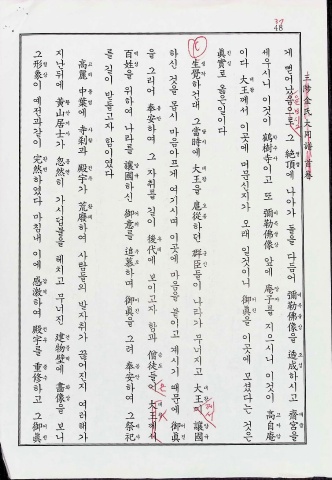 37
48
게 뻗어났음으로 그 絶頂에 나아가 돌을 다듬어 彌勒佛像을 造成하시고 齋宮을
세우시니 이것이 鶴樹寺이고 또 彌勒佛像 앞에 庵子를 지으시니 이것이 高自庵
이다 大王께서 이곳에 머문신지가 오래 일것이니 御眞을 이곳에 모셨다는 것은
眞實로 옳은일이다
生覺하건대 그 當時에 大王을 扈從하던 群臣들이 나라가 무너지고 大王의 讓國
하신 것을 몹시 마음아프게 여기시며 이곳에 마음을 붙이고 계시기 때문에 御眞
을 그리어 奉安하여 그 자취를 길이 後代에 보이고자 함과 僧徒들이 大王께서
百姓을 위하여 나라를 讓國하신 御意를 追慕하며 御眞을 그려 奉安하여 그 祭祀
를 길이 받들고자 함이였다
高麗 中葉에 寺刹과 殿宇가 荒廢하여 사람들의 발자취가 끊어진지 여러해가
지난뒤에 黃山居士가 忽然히 가시덤불을 헤치고 무너진 建物壁에 畵像을 보니
그 形象이 예전과같이 完然하였다 마침내 이에 感激하여 殿宇를 重修하고 그 御眞